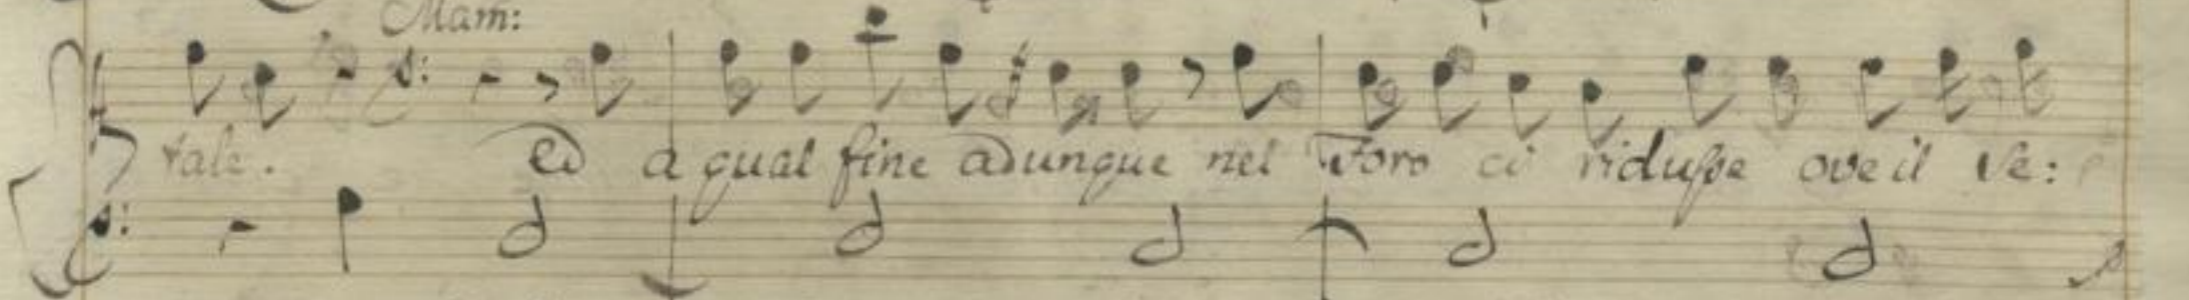 Mam:
tale. ed a qual fine adunque nel Foro ci riduſse ove il Se: